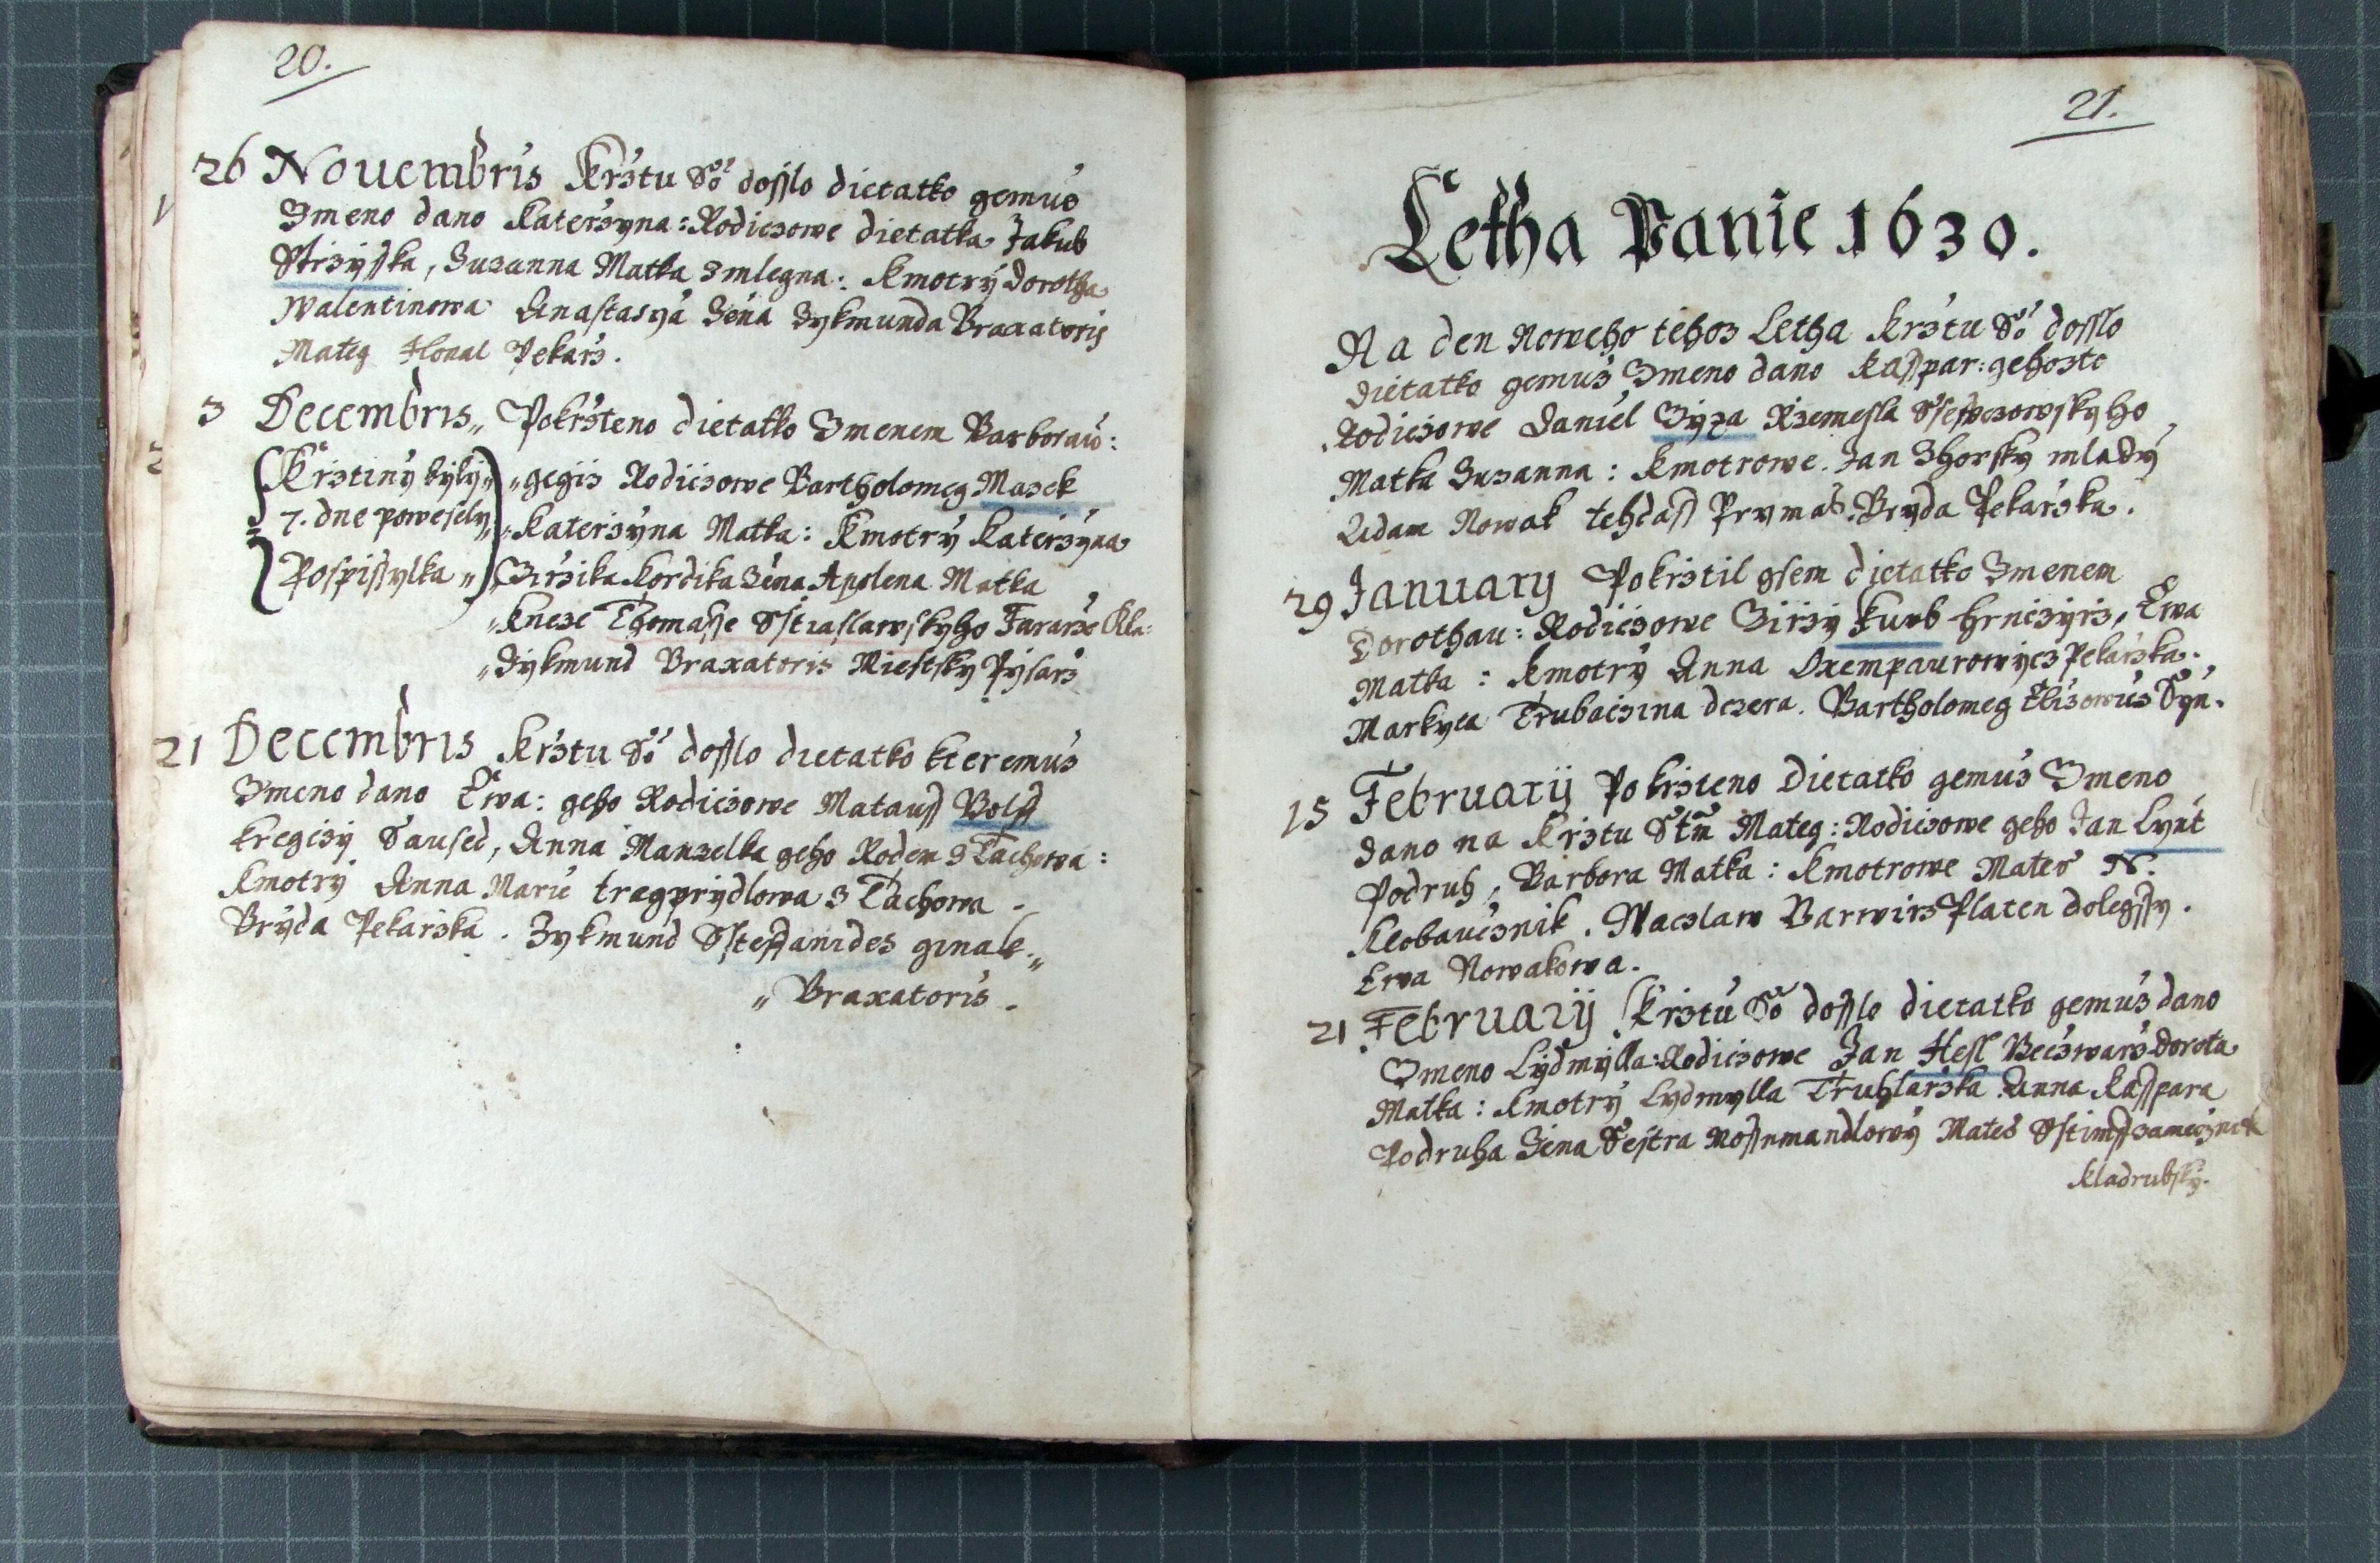 20.
26 Nouembris Krztu So dosslo dietatko gemuo
Zmeno dano Katerzyna: Rodiczowe dietatka Jakub
Strzyska, Zuzanna Matka zmlegna: Kmotrý Dorotha
Walentinowa Anastasyá Žena Zykmunda Braxatoris
Mateg Honal Pekarz.
3 Decembris,, Pokrzteno dietatko Zmenem Barborau:
Krztiný býlý,, ,,gegiz Rodiczowe Bartholomeg Mazek
7. dne powesely,, ,,Katerzyna Matka: Kmotrý Katerzyna
Pospissylka,, Girzika Kordika Žena Apolena Matka
,,Kneze Thomasse Stiaslawskyho Fararze Kla:
,,Zykmund Braxatoris Miestsky Pysarz
21 Decembris Krztu So dosslo dietatko kteremuz
Zmeno dano Ewa: geho Rodiczowe Matauss Wolff
kregczy Saused, Anna Manzelka geho Rodem z Tachowa:
Kmotrý Anna Marie tragprydlowa z Tachowa.
Bryda Pekarzka. Zykmund Ssteffanides ginak,,
,,Braxatoris.
21.
Letha Panie 1630.
Na den Noweho tehoz Letha Krztu So dosslo
dietatko gemuz Zmeno dano Kasspar: gehozto
Rodiczowe Daniel Zyza Rzemesla Ssewczowskyho,
Matka Zuzanna: Kmotrowe. Jan Zhorsky mladý
Adam Nowak tehdass Prymas. Bryda Pekarzka.
29 January Pokrztil gsem dietatko Zmenem
Dorothau: Rodiczowe Girzy Kurb hrnczyrz, Ewa
Matka: Kmotrý Anna Oxempaurowycz Pekarzka.
Markyta Trubaczina dczera. Bartholomeg Elizowuz Syn.
15 Februarij Pokrzteno Dietatko gemuz Zmeno
dano na Krztu Stm Mateg: Rodiczowe geho Jan Lynt
Podruh, Barbora Matka: Kmotrowe Mates N.
Klobaucznik. Waczlaw Barwirz Platen dolegssy.
Ewa Nowakowa.
21 Februarij Krztu So dosslo dietatko gemuz dano
Zmeno Lydmylla: Rodiczowe Jan Hesl Beczwarz Dorota
Matka: Kmotrý Lydmylla Truhlarzka Anna Kasspara
Podruha Žena Sestra Nossnmandlowý Mates zamecznik
Kladrubský.